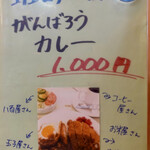 がんばろう
カレー
1,000円
八百屋さん
コーヒー
屋さん
玉子屋さん
お米屋さん